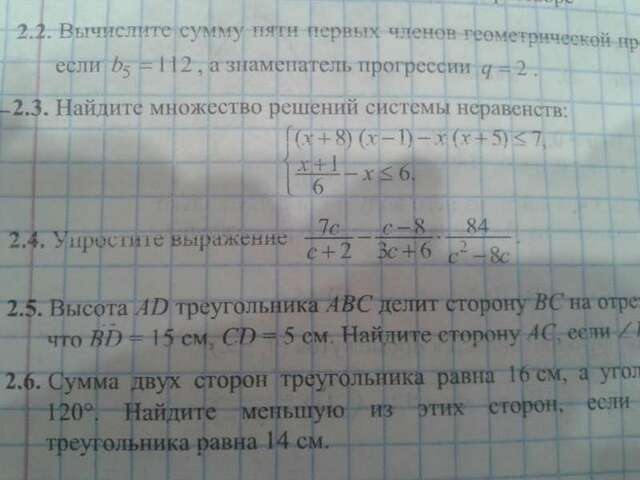 2.2. Вычислите сумму пяти первых членов геометрической
если b₅ = 112, а знаменатель прогрессии q = 2.
2.3. Найдите множество решений системы неравенств:
(x + 8) (x − 1) − x (x + 5) ≤ 7,
(x + 1)/6 − x ≤ 6.
2.4. Упростите выражение 7c/(c + 2) − (c − 8)/(3c + 6) · 84/(c² − 8c).
2.5. Высота AD треугольника ABC делит сторону BC на
что BD = 15 см, CD = 5 см. Найдите сторону AC, если
2.6. Сумма двух сторон треугольника равна 16 см, а
120°. Найдите меньшую из этих сторон, если
треугольника равна 14 см.